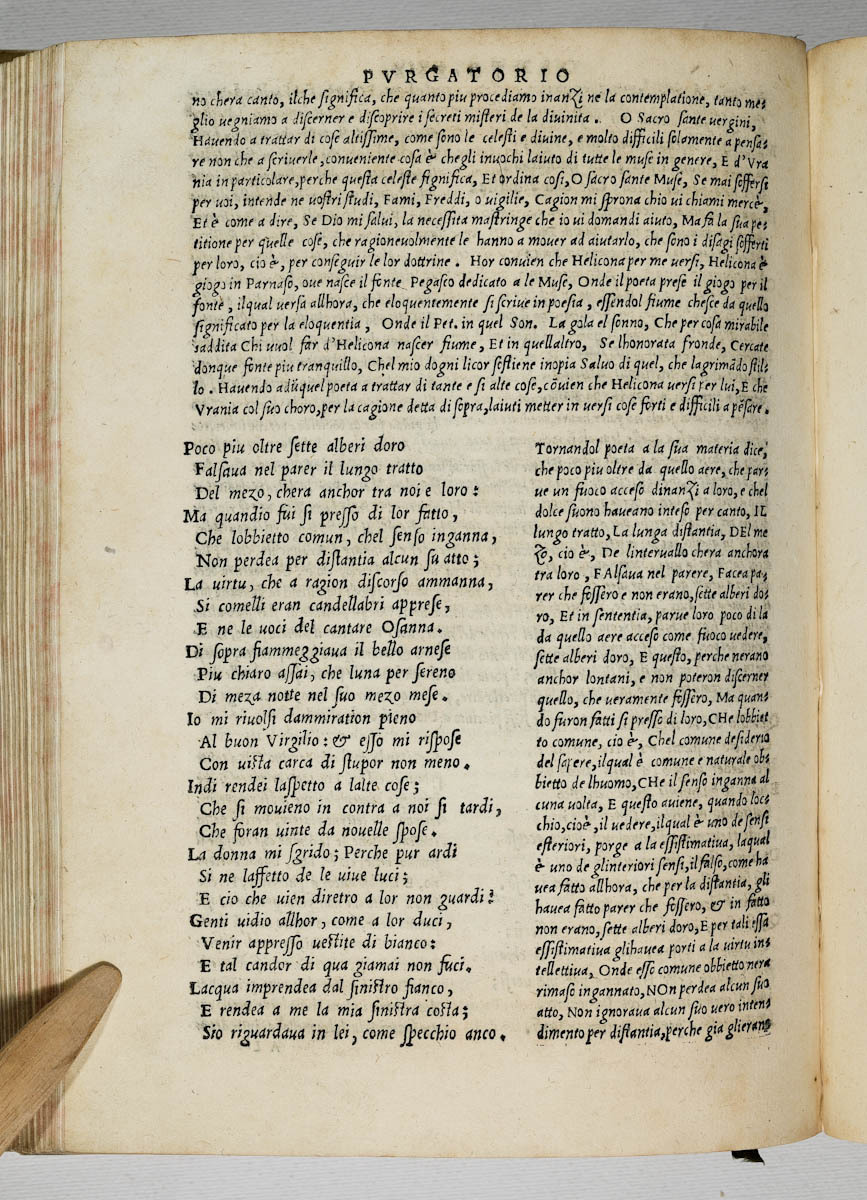 PVRGATORIO
no chera canto, ilche ſignifica, che quanto piu procediamo inanzi ne la contemplatione, tanto me⸗
glio uegniamo a diſcerner e diſcoprire i ſecreti miſteri de la diuinita. O Sacro ſante uergini,
Hauendo a trattar di coſe altiſſime, come ſono le celeſti e diuine, e molto difficili ſolamente a penſa⸗
re non che a ſcriuerle, conueniente coſa è chegli inuochi laiuto di tutte le muſe in genere, E d'Vra
nia in particolare, perche queſta celeſte ſignifica, Et ordina coſi, O ſacro ſante Muſe, Se mai ſofferſe
per uoi, intende ne uoſtri ſtudi, Fami, Freddi, o uigilie, Cagion mi ſprona chio ui chiami mercè,
Et è come a dire, Se Dio mi ſalui, la neceſſita maſtringe che io ui domandi aiuto, Ma fa la ſua pe⸗
titione per quelle coſe, che ragioneuolmente le hanno a mouer ad aiutarlo, che ſono i diſagi ſofferti
per loro, cio è, per conſeguir le lor dottrine. Hor conuien che Helicona per me uerſi, Helicona è
giogo in Parnaſo, oue naſce il fonte Pegaſeo dedicato a le Muſe, Onde il poeta preſe il giogo per il
fonte, ilqual uerſa allhora, che eloquentemente ſi ſcriue in poeſia, eſſendol fiume cheſce da quello
ſignificato per la eloquentia, Onde il Pet. in quel Son. La gola el ſonno, Che per coſa mirabile
saddita Chi uuol far d'Helicona naſcer fiume, Et in quellaltro, Se lhonorata fronde, Cercate
donque fonte piu tranquillo, Chel mio dogni licor ſoſtiene inopia Saluo di quel, che lagrimādo ſtil⸗
lo. Hauendo adūquel poeta a trattar di tante e ſi alte coſe, cōuien che Helicona uerſi per lui, E che
Vrania col ſuo choro, per la cagione detta di ſopra, laiuti metter in uerſi coſe forti e difficili a pēſare.
Poco piu oltre ſette alberi doro
Falſaua nel parer il lungo tratto
Del mezo, chera anchor tra noi e loro:
Ma quandio fui ſi preſſo di lor fatto,
Che lobbietto comun, chel ſenſo inganna,
Non perdea per diſtantia alcun ſu atto;
La uirtu, che a ragion diſcorſo ammanna,
Si comelli eran candellabri appreſe,
E ne le uoci del cantare Oſanna.
Di ſopra fiammeggiaua il bello arneſe
Piu chiaro aſſai, che luna per ſereno
Di meza notte nel ſuo mezo meſe.
Io mi riuolſi dammiration pieno
Al buon Virgilio: & eſſo mi riſpoſe
Con uiſta carca di ſtupor non meno.
Indi rendei laſpetto a lalte coſe;
Che ſi mouieno in contra a noi ſi tardi,
Che foran uinte da nouelle ſpoſe.
La donna mi ſgrido; Perche pur ardi
Si ne laffetto de le uiue luci;
E cio che uien diretro a lor non guardi?
Genti uidio allhor, come a lor duci,
Venir appreſſo ueſtite di bianco:
E tal candor di qua giamai non fuci.
Lacqua imprendea dal ſiniſtro fianco,
E rendea a me la mia ſiniſtra coſta;
Sio riguardaua in lei, come ſpecchio anco.
Tornandol poeta a la ſua materia dice,
che poco piu oltre da quello aere, che par⸗
ue un fuoco acceſo dinanzi a loro, e chel
dolce ſuono haueano inteſo per canto, IL
lungo tratto, La lunga diſtantia, DEl me
zo, cio è, De linteruallo chera anchora
tra loro, FAlſaua nel parere, Facea pa⸗
rer che foſſero e non erano, ſette alberi do⸗
ro, Et in ſententia, parue loro poco di la
da quello aere acceſo come fuoco uedere,
ſette alberi doro, E queſto, perche nerano
anchor lontani, e non poteron diſcerner
quello, che ueramente foſſero, Ma quan⸗
do furon fatti ſi preſſo di loro, CHe lobbiet
to comune, cio è, Chel comune deſiderio
del ſapere, ilqual è comune e naturale ob⸗
bietto de lhuomo, CHe il ſenſo inganna al
cuna uolta, E queſto auiene, quando loc⸗
chio, cio è, il uedere, ilqual è uno de ſenſi
eſteriori, porge a la eſſiſtimatiua, laqual
è uno de glinteriori ſenſi, il falſo, come ha
uea fatto allhora, che per la diſtantia, gli
hauea fatto parer che foſſero, & in fatto
non erano, ſette alberi doro, E per tali eſſa
eſſiſtimatiua glihauea porti a la uirtu in⸗
tellettiua, Onde eſſo comune obbietto nera
rimaſo ingannato, NOn perdea alcun ſuo
atto, Non ignoraua alcun ſuo uero inten⸗
dimento per diſtantia, perche gia glierano